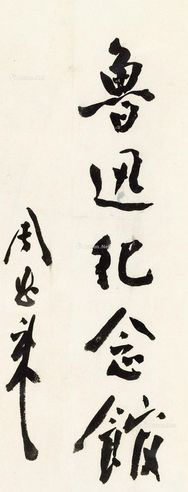 魯迅紀念館
周恩来